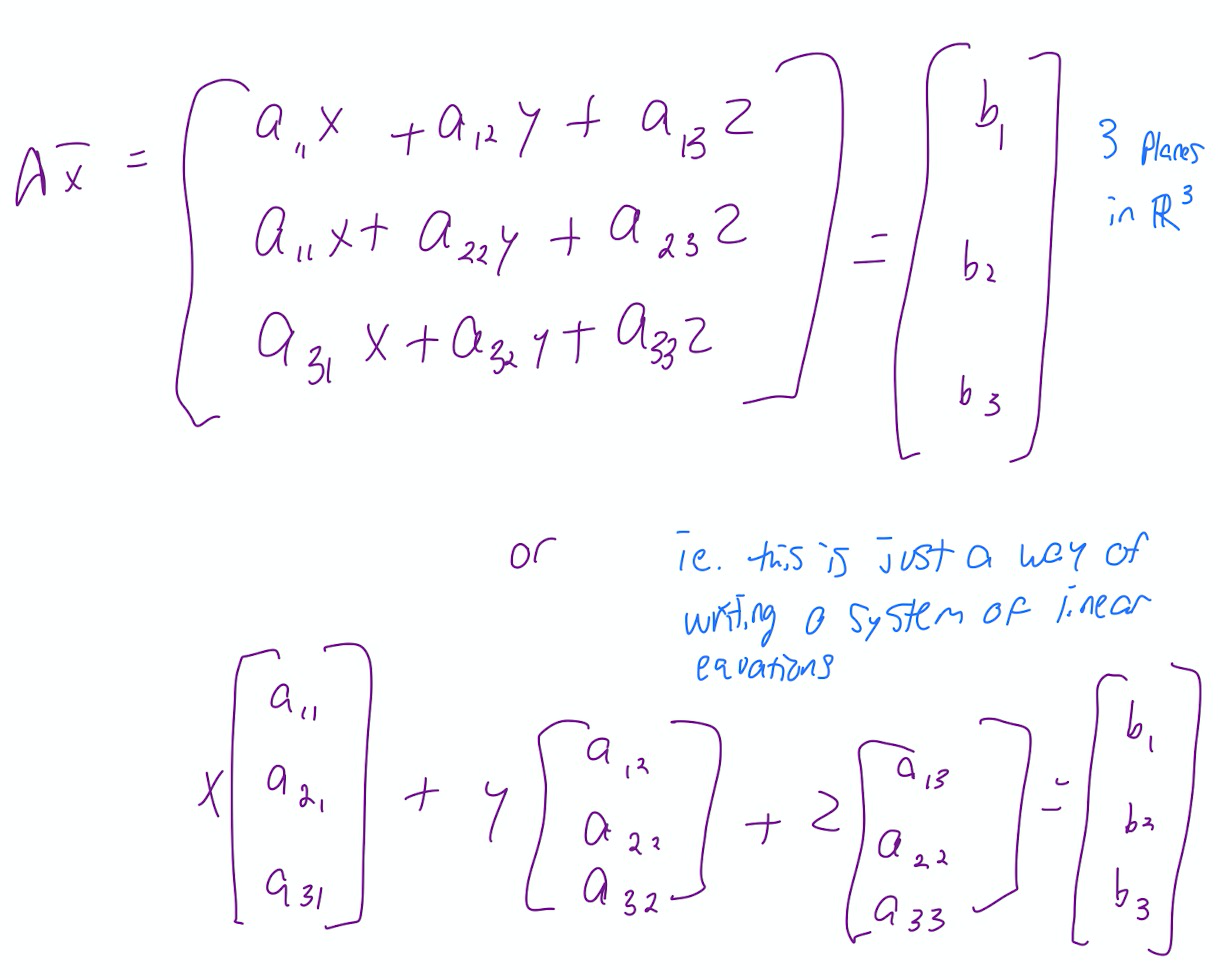 Ax̄ = [ a₁₁x + a₁₂y + a₁₃z = [ b₁ 3 Planes
a₁₁x + a₂₂y + a₂₃z b₂ in ℝ³
a₃₁x + a₃₂y + a₃₃z ] b₃ ]
or ie. this is just a way of
writing a system of linear
equations
x [ a₁₁ a₂₁ a₃₁ ] + y [ a₁₂ a₂₂ a₃₂ ] + z [ a₁₃ a₂₂ a₃₃ ] = [ b₁ b₂ b₃ ]